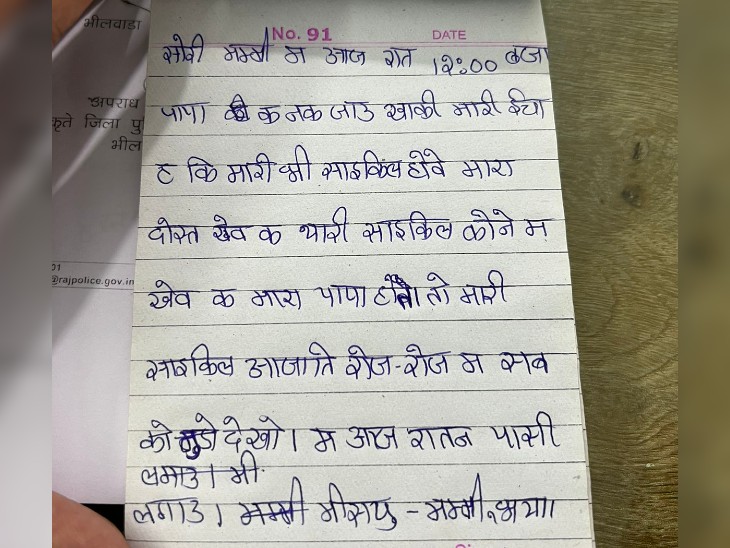 भीलवाडा
अपराध
कृते जिला पु
भील
01
@rajpolice.gov.in
No. 91
DATE
सोरी मम्मी म आज रात 12:00 बजा
पापा क नक जाउ खाकी मारी ईचा
ह कि मारी भी साइकिल होवे मारा
दोस्त खेव क थारी साइकिल कोने म
खेव क मारा पापा होता तो मारी
साइकिल आजाति रोज-रोज म सब
को मुडो देखो। म आज रातन पासी
लमाउ। मी
लगाउ। मम्मी मीसयु - मम्मी, भया।